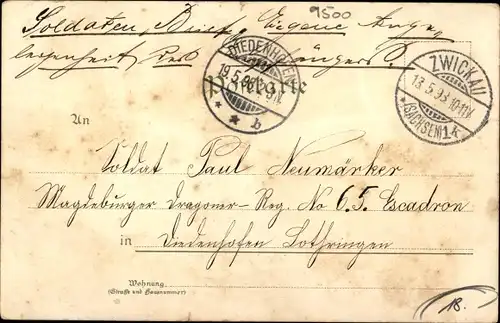 9500
Soldaten Brief, Eigene Ange-
legenheit des Empfängers.
DIEDENHOFEN
19.5.98
* * b
ZWICKAU
18.5.98 10-11V.
*(SACHSEN)1k
Postkarte
An
Soldat Paul Neumärker
Magdeburger Dragoner-Reg. No 6 5. Escadron
in Diedenhofen Lothringen
Wohnung
(Straße und Hausnummer)
18.